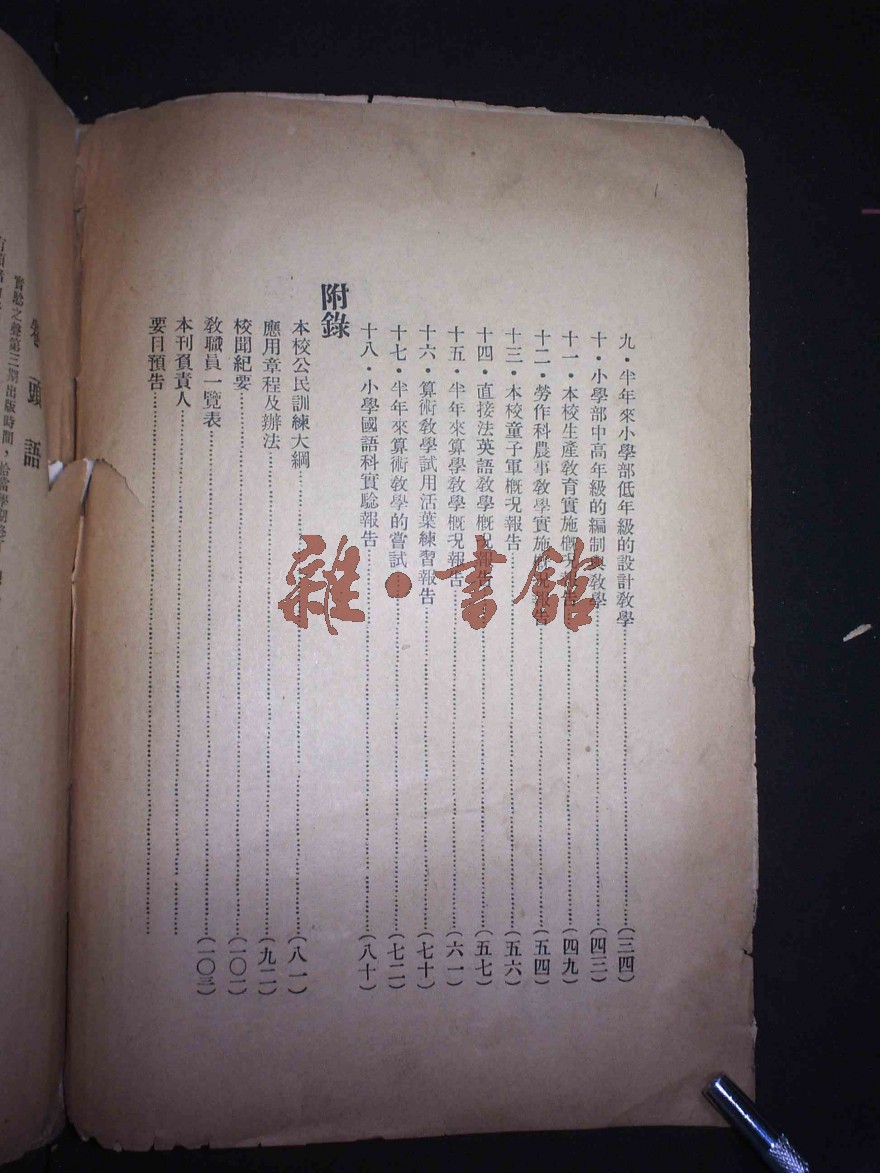 九・半年來小學部低年級的設計敎學……(三四)
十・小學部中高年級的編制與敎學……(四三)
十一・本校生產敎育實施概況報告……(四九)
十二・勞作科農事敎學實施概況報告……(五四)
十三・本校童子軍概況報告……(五六)
十四・直接法英語敎學概況報告……(五七)
十五・半年來算學敎學概況報告……(六一)
十六・算術敎學試用活葉練習報告……(七十)
十七・半年來算術敎學的嘗試……(七二)
十八・小學國語科實驗報告……(八十)
附錄
本校公民訓練大綱……(八一)
應用章程及辦法……(九二)
校聞紀要……(一〇一)
敎職員一覽表……(一〇三)
本刊負責人……
要目預告……
卷頭語
實驗之聲第三期出版時間，
雜・書館